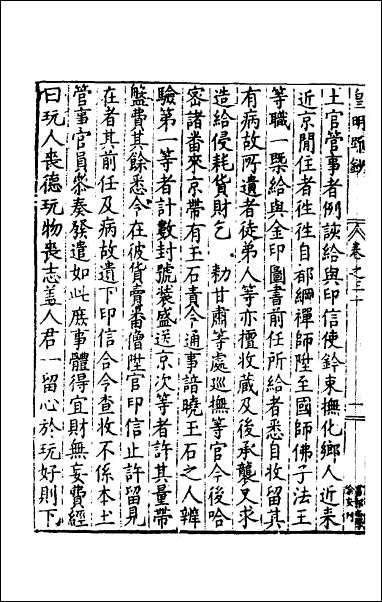 皇明疏鈔
卷之三十
一
土官管事者例該給與印信使鈐束撫化鄉人近来
近京閒住者徃徃自都綱禪師陞至國師佛子法王
等職一槩給與金印圖書前任所給者悉自收留其
有病故所遺者徒弟人等亦擅收蔵及後承襲又求
造給侵耗貨財乞 勑甘肅等處廵撫等官今後哈
密諸畨來京帶有玉石責令通事諳曉玉石之人辨
驗第一等者計數封號装盛送京次等者許其量帶
盤費其餘悉令在彼貨賣畨僧陞官印信止許留見
在者其前任及病故遺下印信合令查收不係本土
管事官員叅奏發遣如此庻事體得宜財無妄費經
曰玩人喪德玩物喪志盖人君一留心於玩好則下